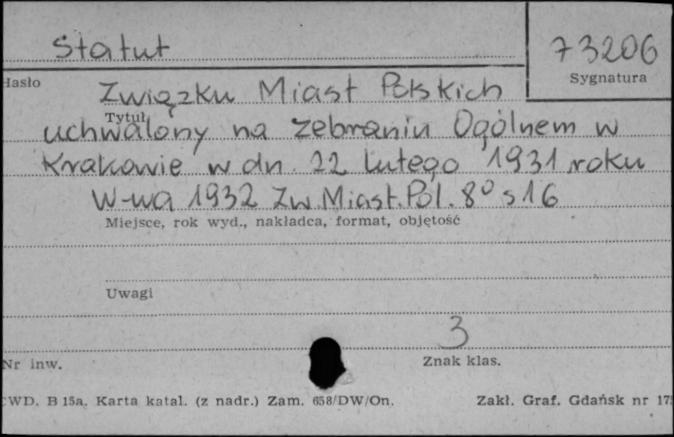 Statut
73206
Hasło
Sygnatura
Związku Miast Polskich
Tytuł
uchwalony na zebraniu Ogólnem w
Krakowie w dn. 22 lutego 1931 roku
W-wa 1932 Zw. Miast. Pol. 8° s 16
Miejsce, rok wyd., nakładca, format, objętość
Uwagi
3
Nr inw.
Znak klas.
WD. B 15a. Karta katal. (z nadr.) Zam. 658/DW/On.
Zakł. Graf. Gdańsk nr 17